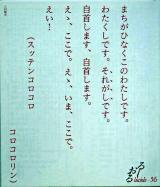 まちがひなくこのわたしです。
わたくしです。それがしです。
自首します、自首します。
えゝ、ここで。えゝ、いま、ここで。
えい！
（スッテンコロコロ
コロコロリン）
おろおろ